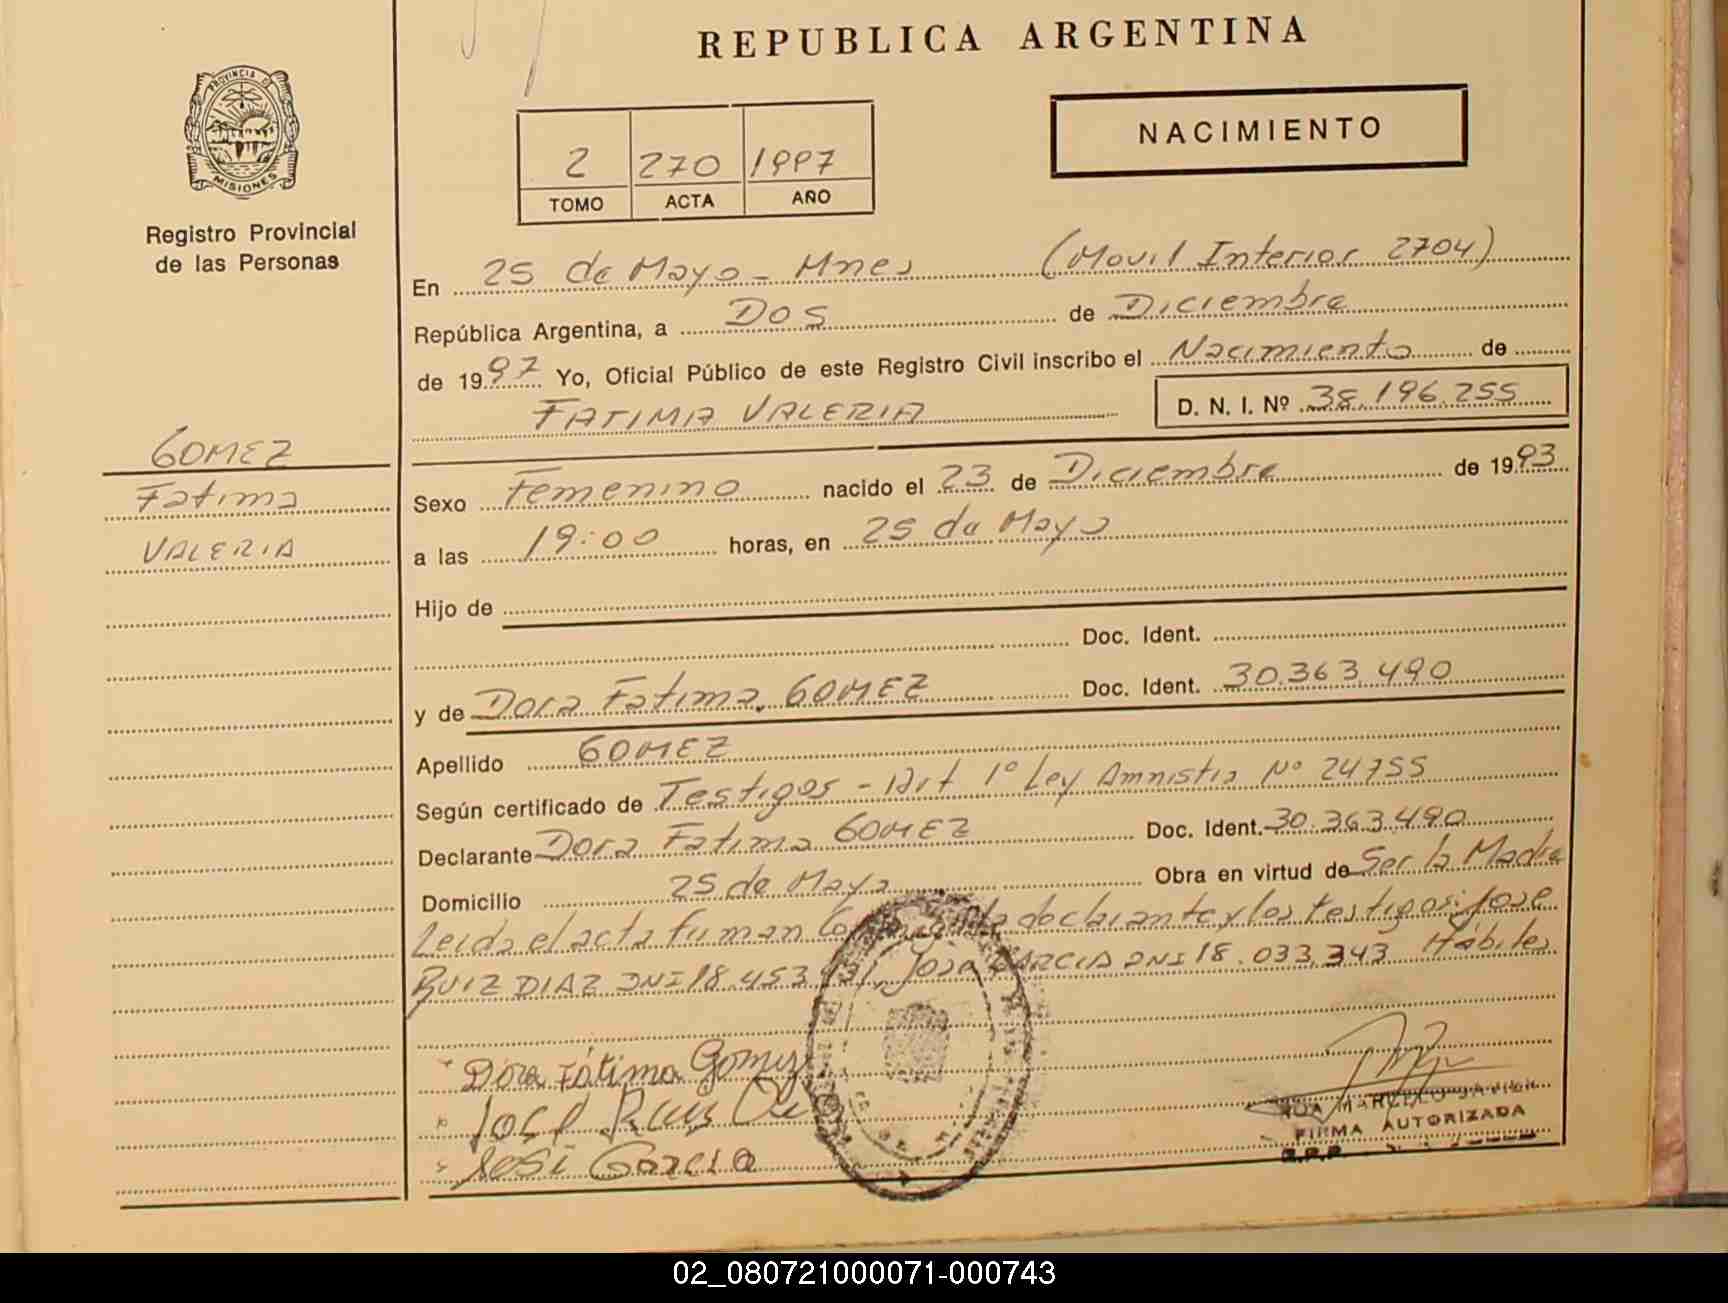 REPUBLICA ARGENTINA
PROVINCIA DE
MISIONES
Registro Provincial
de las Personas
NACIMIENTO
2 270 1997
TOMO ACTA AÑO
En 25 de Mayo - Mnes (Movil Interior 2704)
República Argentina, a Dos de Diciembre
de 1997 Yo, Oficial Público de este Registro Civil inscribo el Nacimiento de
FATIMA VALERIA D. N. I. Nº 38.196.255
GOMEZ
Fatima
VALERIA
Sexo Femenino nacido el 23 de Diciembre de 1993
a las 19:00 horas, en 25 de Mayo
Hijo de
Doc. Ident.
y de Dora Fatima GOMEZ Doc. Ident. 30.363.490
Apellido GOMEZ
Según certificado de Testigos - Art 1º Ley Amnistia Nº 24755
Declarante Dora Fatima GOMEZ Doc. Ident. 30.363.490
Domicilio 25 de Mayo Obra en virtud de Ser la Madre
Leida el acta firman la declarante y los testigos: Jose
RUIZ DIAZ DNI 18.453, Jose GARCIA DNI 18.033.343 Hábiles
Dora Fátima Gomez
José Ruis
José Garcia
MARCELO JAVIER
FIRMA AUTORIZADA
02_080721000071-000743